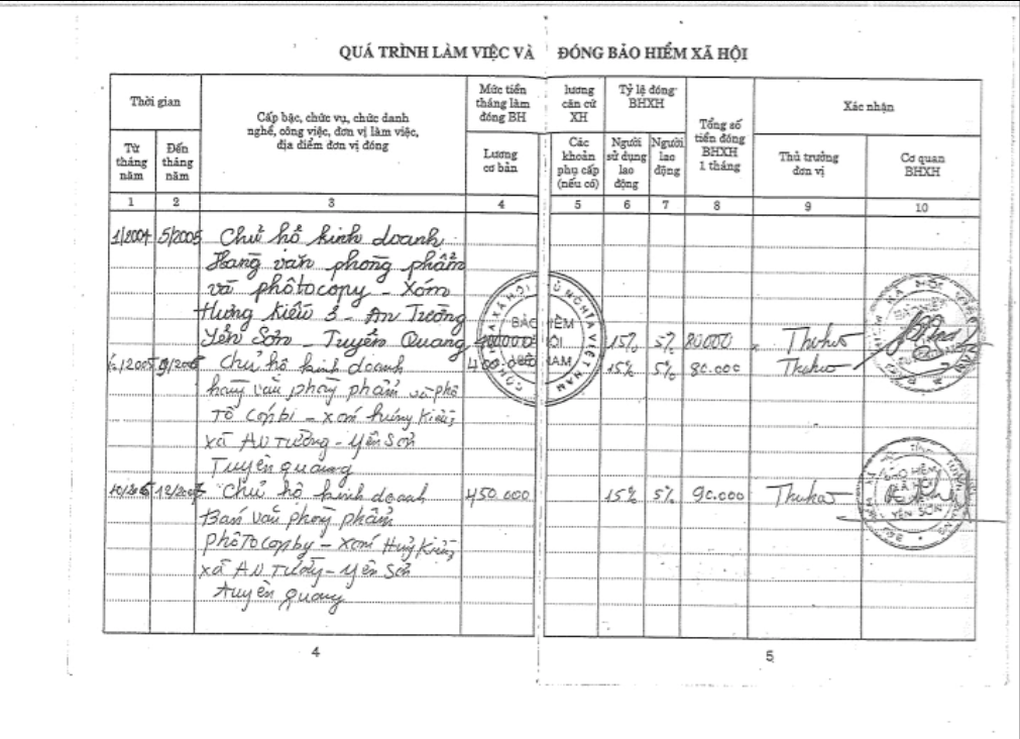 QUÁ TRÌNH LÀM VIỆC VÀ ĐÓNG BẢO HIỂM XÃ HỘI
Thời gian
Cấp bậc, chức vụ, chức danh
nghề, công việc, đơn vị làm việc,
địa điểm đơn vị đóng
Mức tiền
tháng làm
đóng BH
lương
căn cứ
XH
Tỷ lệ đóng
BHXH
Tổng số
tiền đóng
BHXH
1 tháng
Xác nhận
Từ
tháng
năm
Đến
tháng
năm
Lương
cơ bản
Các
khoản
phụ cấp
(nếu có)
Người
sử dụng
lao
động
Người
lao
động
Thủ trưởng
đơn vị
Cơ quan
BHXH
1 2 3 4 5 6 7 8 9 10
1/2004 5/2005 Chủ hộ kinh doanh
Hàng văn phòng phẩm
và phôtocopy - Xóm
Hưng Kiều 3 - An Tường
Yên Sơn - Tuyên Quang 15% 5% 80000
9/2006 Chủ hộ kinh doanh 15% 5% 80.000
hàng văn phòng phẩm và phô
tô - xóm
xã An Tường - Yên Sơn
Tuyên quang
12/2007 Chủ hộ kinh doanh 450.000 15% 5% 90.000
Bán văn phòng phẩm
phôtocopby - xóm
xã An Tường - Yên Sơn
tuyên quang
BẢO HIỂM
VIỆT NAM
BẢO HIỂM
XÃ HỘI
YÊN SƠN
4
5